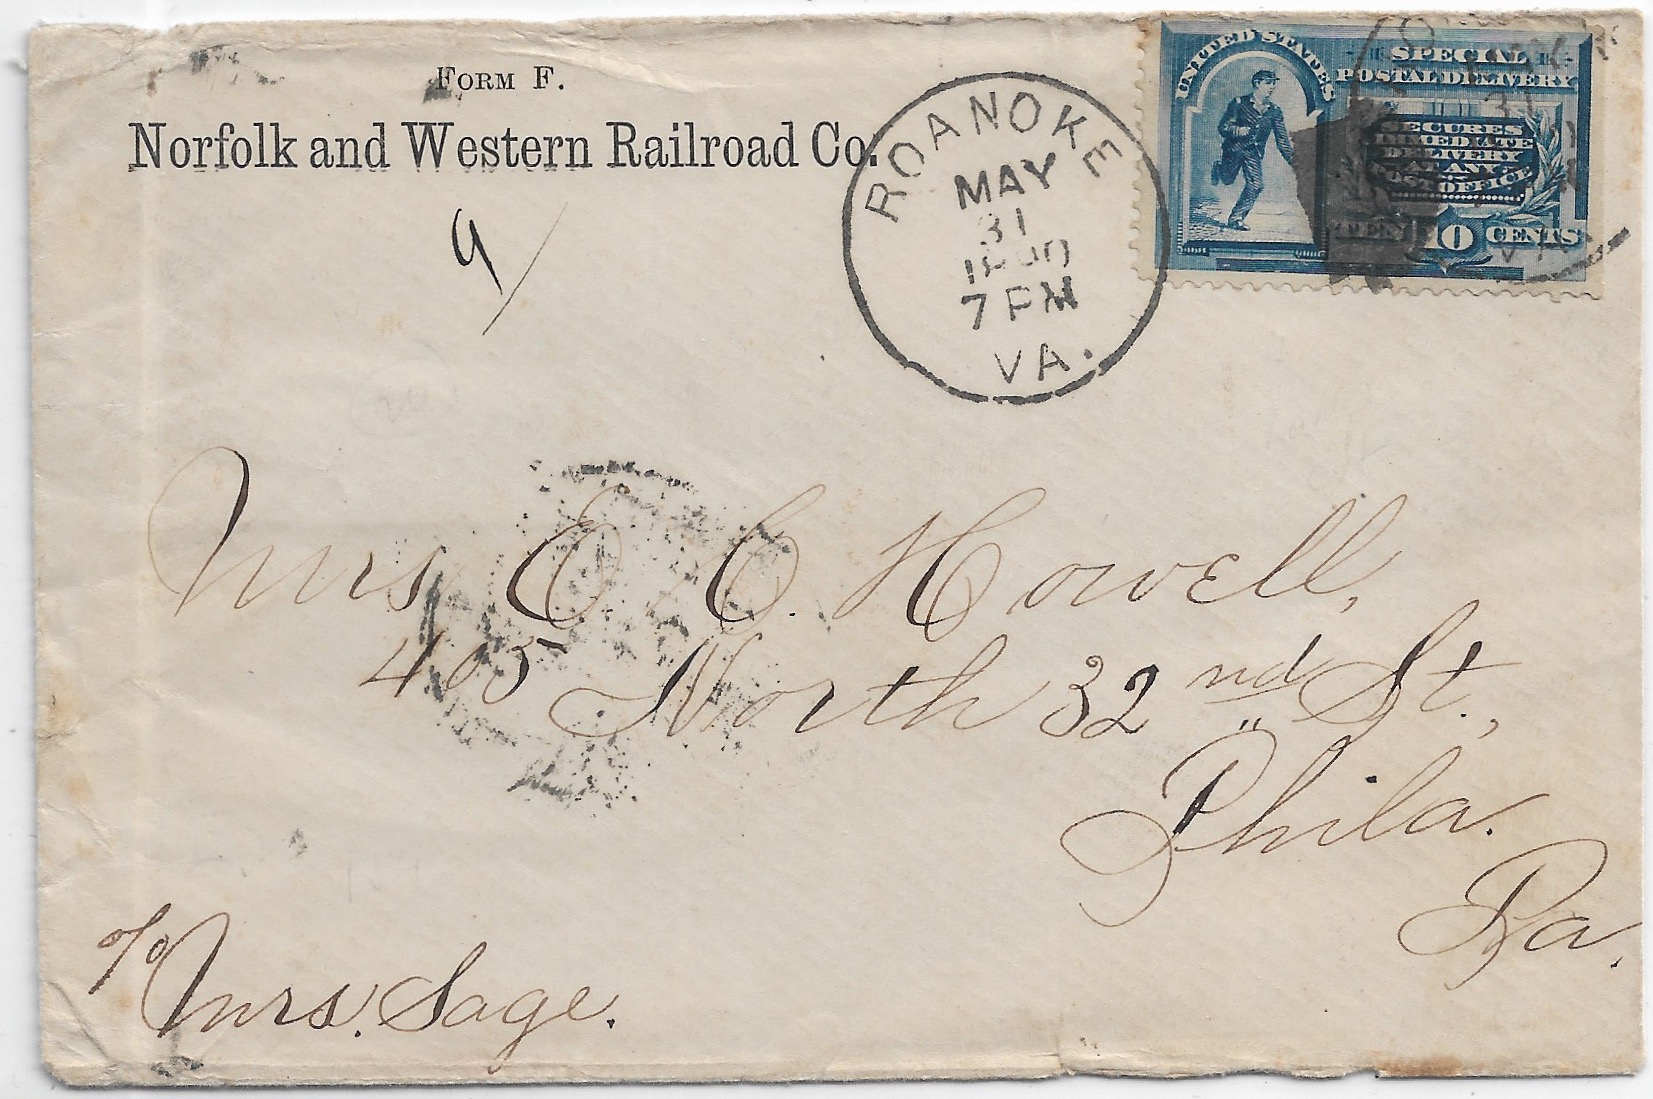 Form F.
Norfolk and Western Railroad Co.
9/
ROANOKE
MAY
31
7 PM
VA.
UNITED STATES
SPECIAL
POSTAL DELIVERY
SECURES
IMMEDIATE
DELIVERY
AT ANY
POST OFFICE
TEN 10 CENTS
Mrs C. C. Howell,
405 North 32nd St.,
Phila.
Pa.
c/o Mrs. Sage.